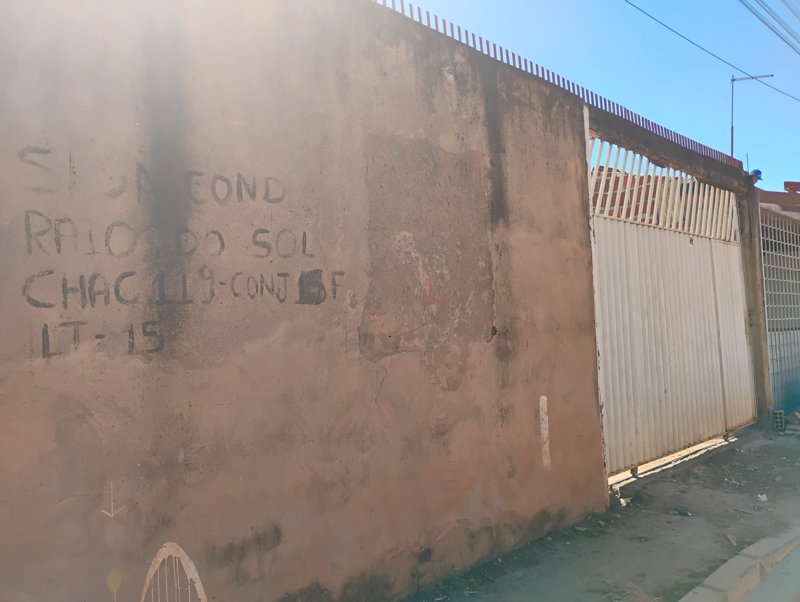 COND
RAIO DO SOL
CHAC 119-CONJ F
LT-15